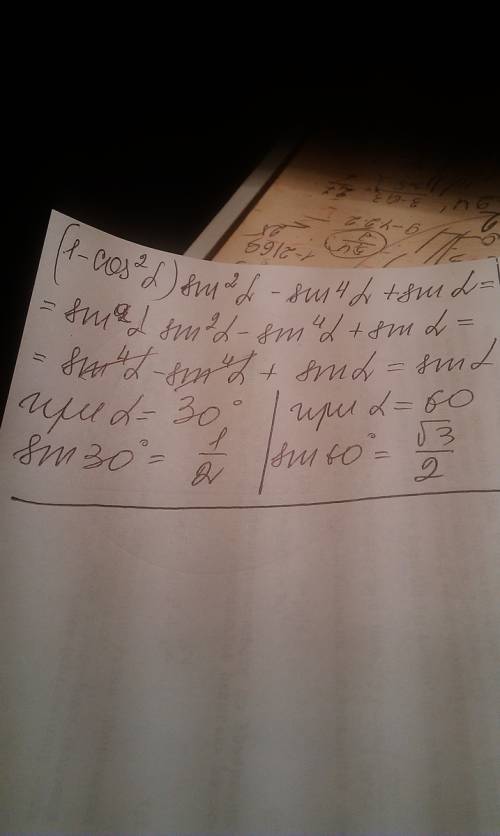 (1-cos²α) sin²α - sin⁴α + sin α =
= sin²α sin²α - sin⁴α + sin α =
= sin⁴α - sin⁴α + sin α = sin α
при α = 30° | при α = 60
sin 30° = 1/2 | sin 60° = √3/2